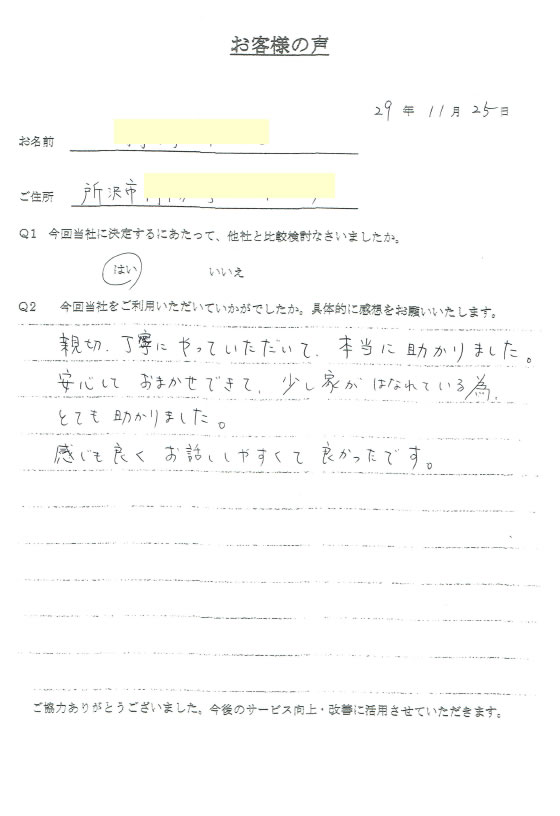 お客様の声
29年 11月 25日
お名前
ご住所 所沢市
Q1 今回当社に決定するにあたって、他社と比較検討なさいましたか。
はい いいえ
Q2 今回当社をご利用いただいていかがでしたか。具体的に感想をお願いいたします。
親切、丁寧にやっていただいて、本当に助かりました。
安心して おまかせできて、少し家がはなれている為、
とても助かりました。
感じも良く お話ししやすくて 良かったです。
ご協力ありがとうございました。今後のサービス向上・改善に活用させていただきます。